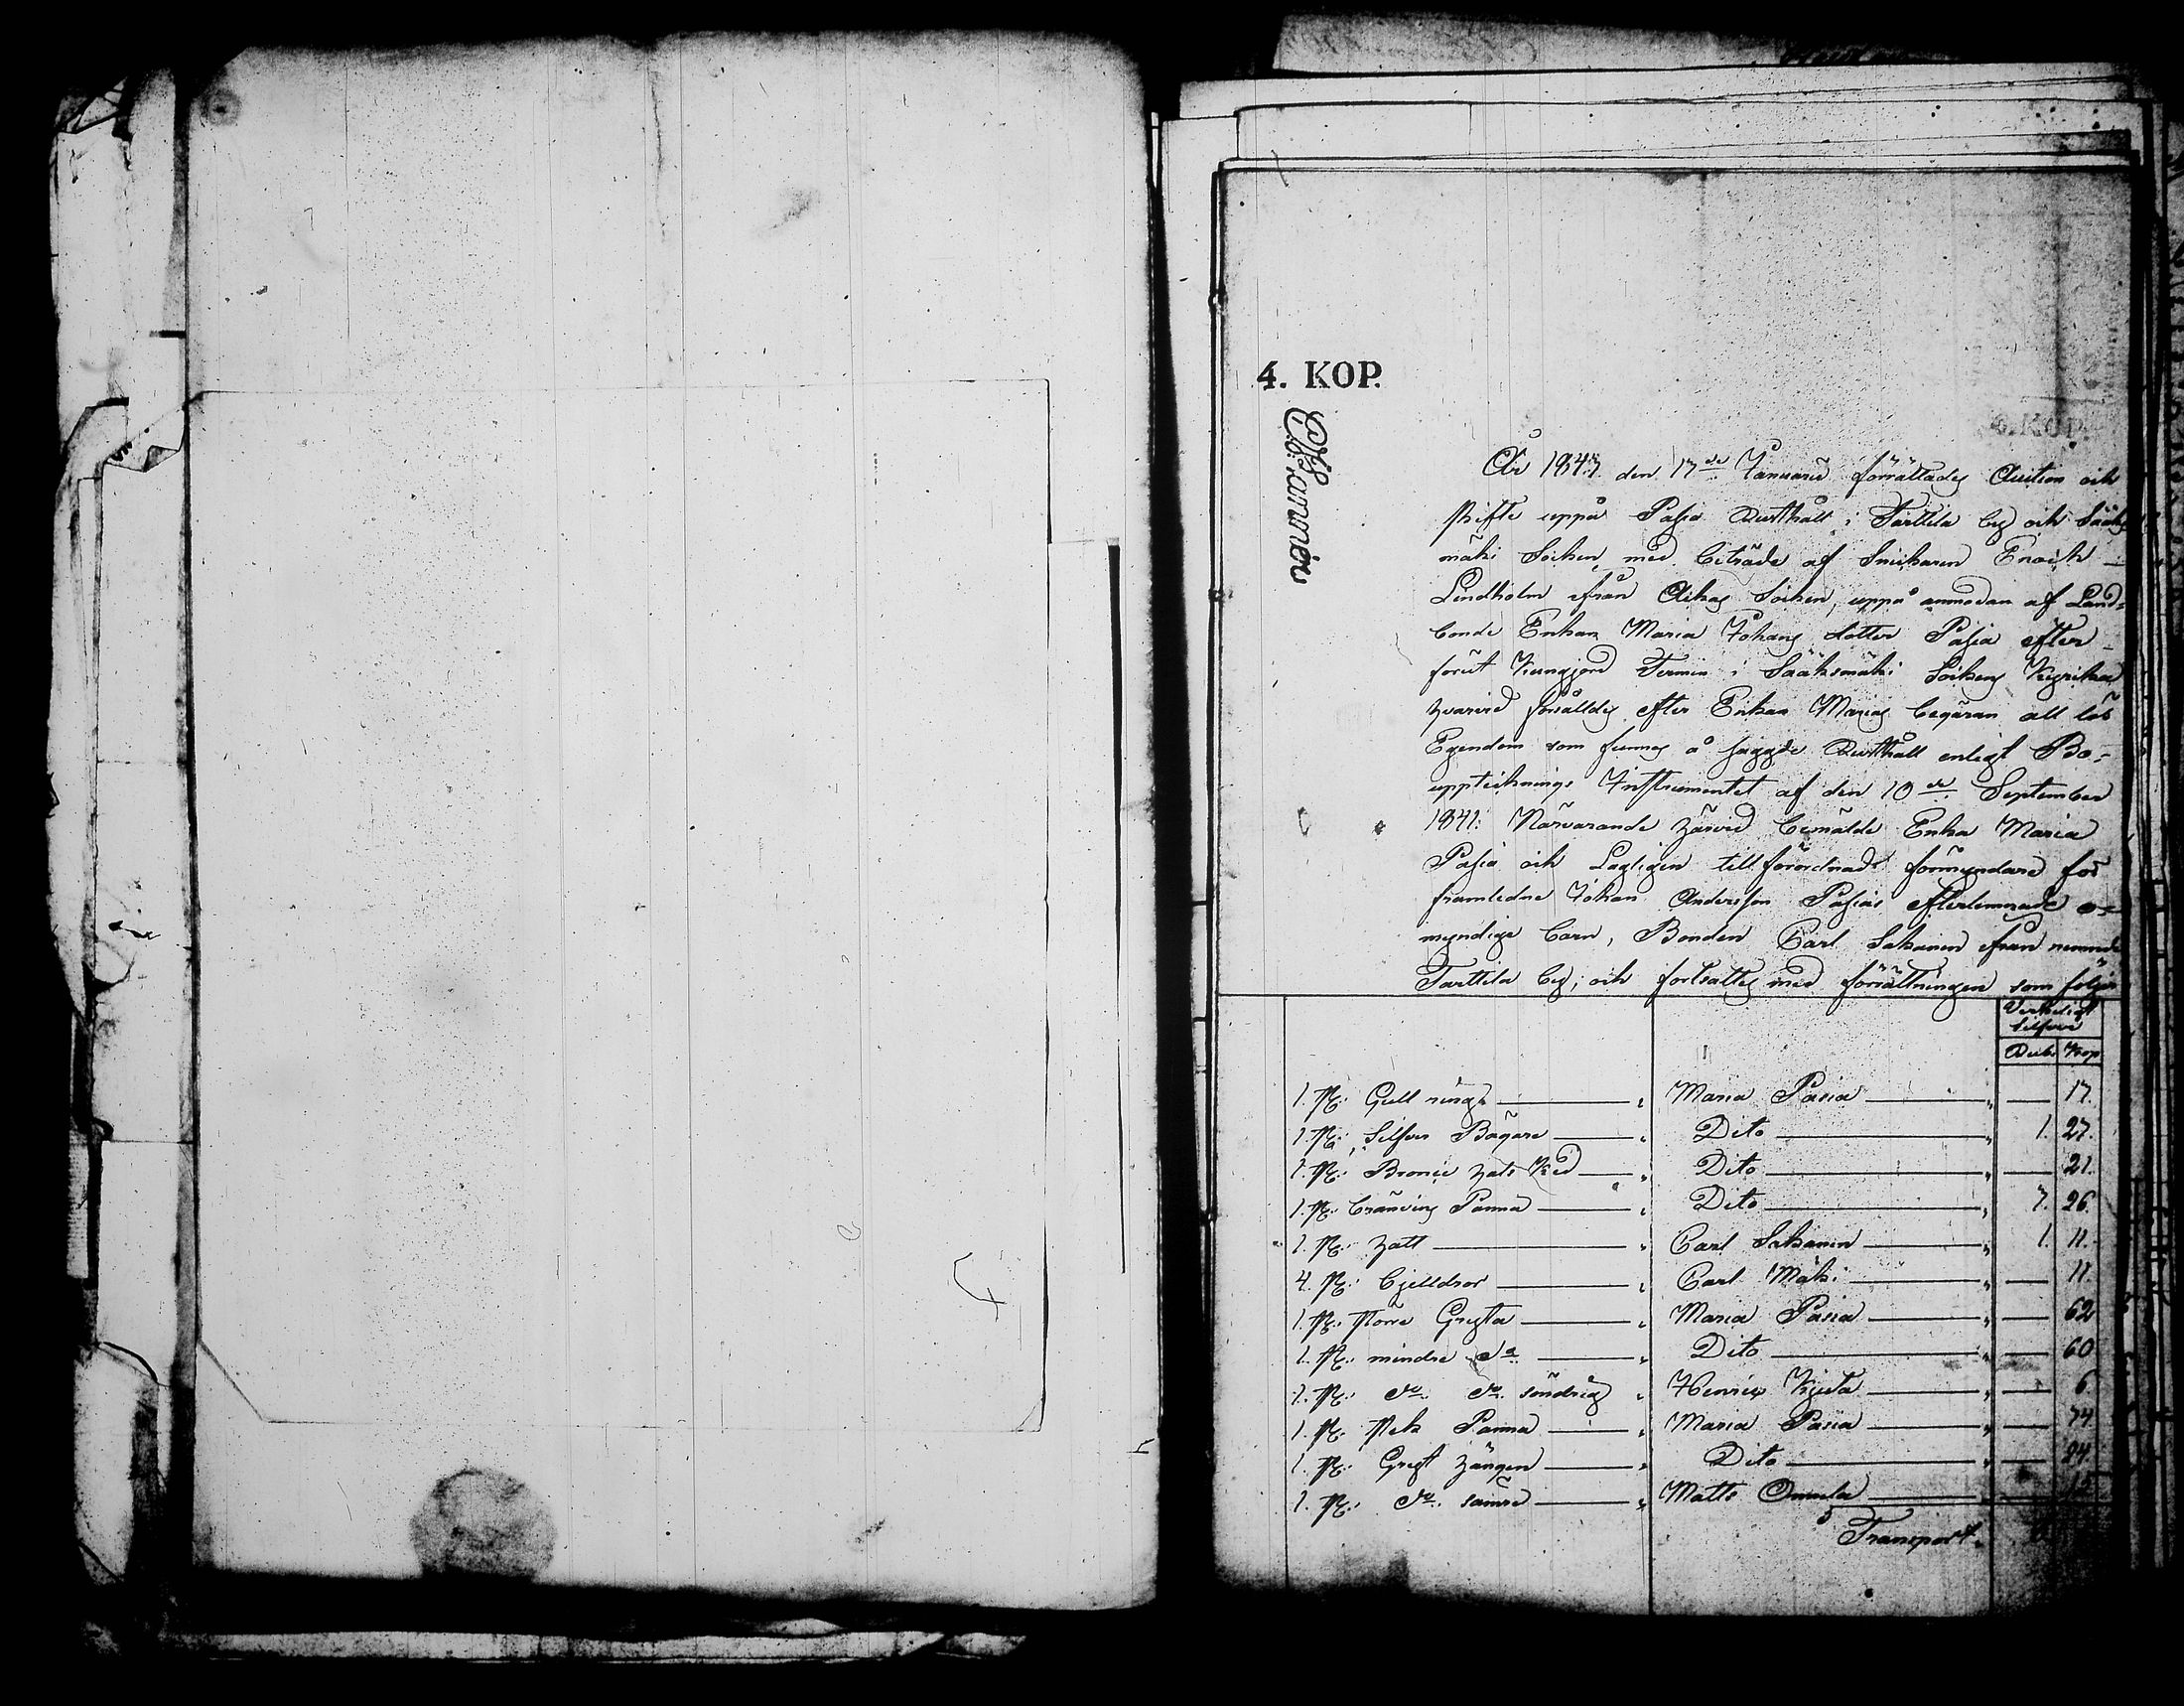 4. KOP.
År 1843 den 17de Januarii förrättades Auction och
skifte uppå Pasia Rusthåll i Tarttila by och Sääks
mäki Socken, med biträde af Snickaren Enoch
Lindholm ifrån Ackas Socken, uppå anmodan af Land-
bonde Enkan Maria Johans dotter Pasia efter
förut kungjord Termin i Sääksmäki Sockens Kyrika
hvarvid försåldes efter Enkan Marias begäran all lös
Egendom som funnes å sagde Rusthåll enligt Bo-
uppteiknings Instrumentet af den 10de September
1841: Närvarande härvid bemälde Enka Maria
Pasia och Lagligen tillförordnade förmyndare för
framledne Johan Andersson Pasias efterlemnade o-
myndige barn, Bonden Carl Sakanen ifrån nemnde
Tarttila by; och fortsattes med förrättningen som följer
Verkeligt
Silfver
Rub. Kop
1. St: Gull ring Maria Pasia 17.
1. St: Silfver Bägare Dito 1. 27.
1. St: Bronie hals Ked Dito 21.
1. St: bränvins Panna Dito 7. 26.
1. St: hatt Carl Sakanen 1. 11.
4. St: bjelldror Carl Mäki 11.
1. St: större Gryta Maria Pasia 62
1. St: mindre do Dito 60
1. St: do do söndrig Henric Kijuta 6.
1. St: Stek Panna Maria Pasia 74
1. St: Gryt hängen Dito 84.
1. St: do sämre Matts Onnela 15
Transport.